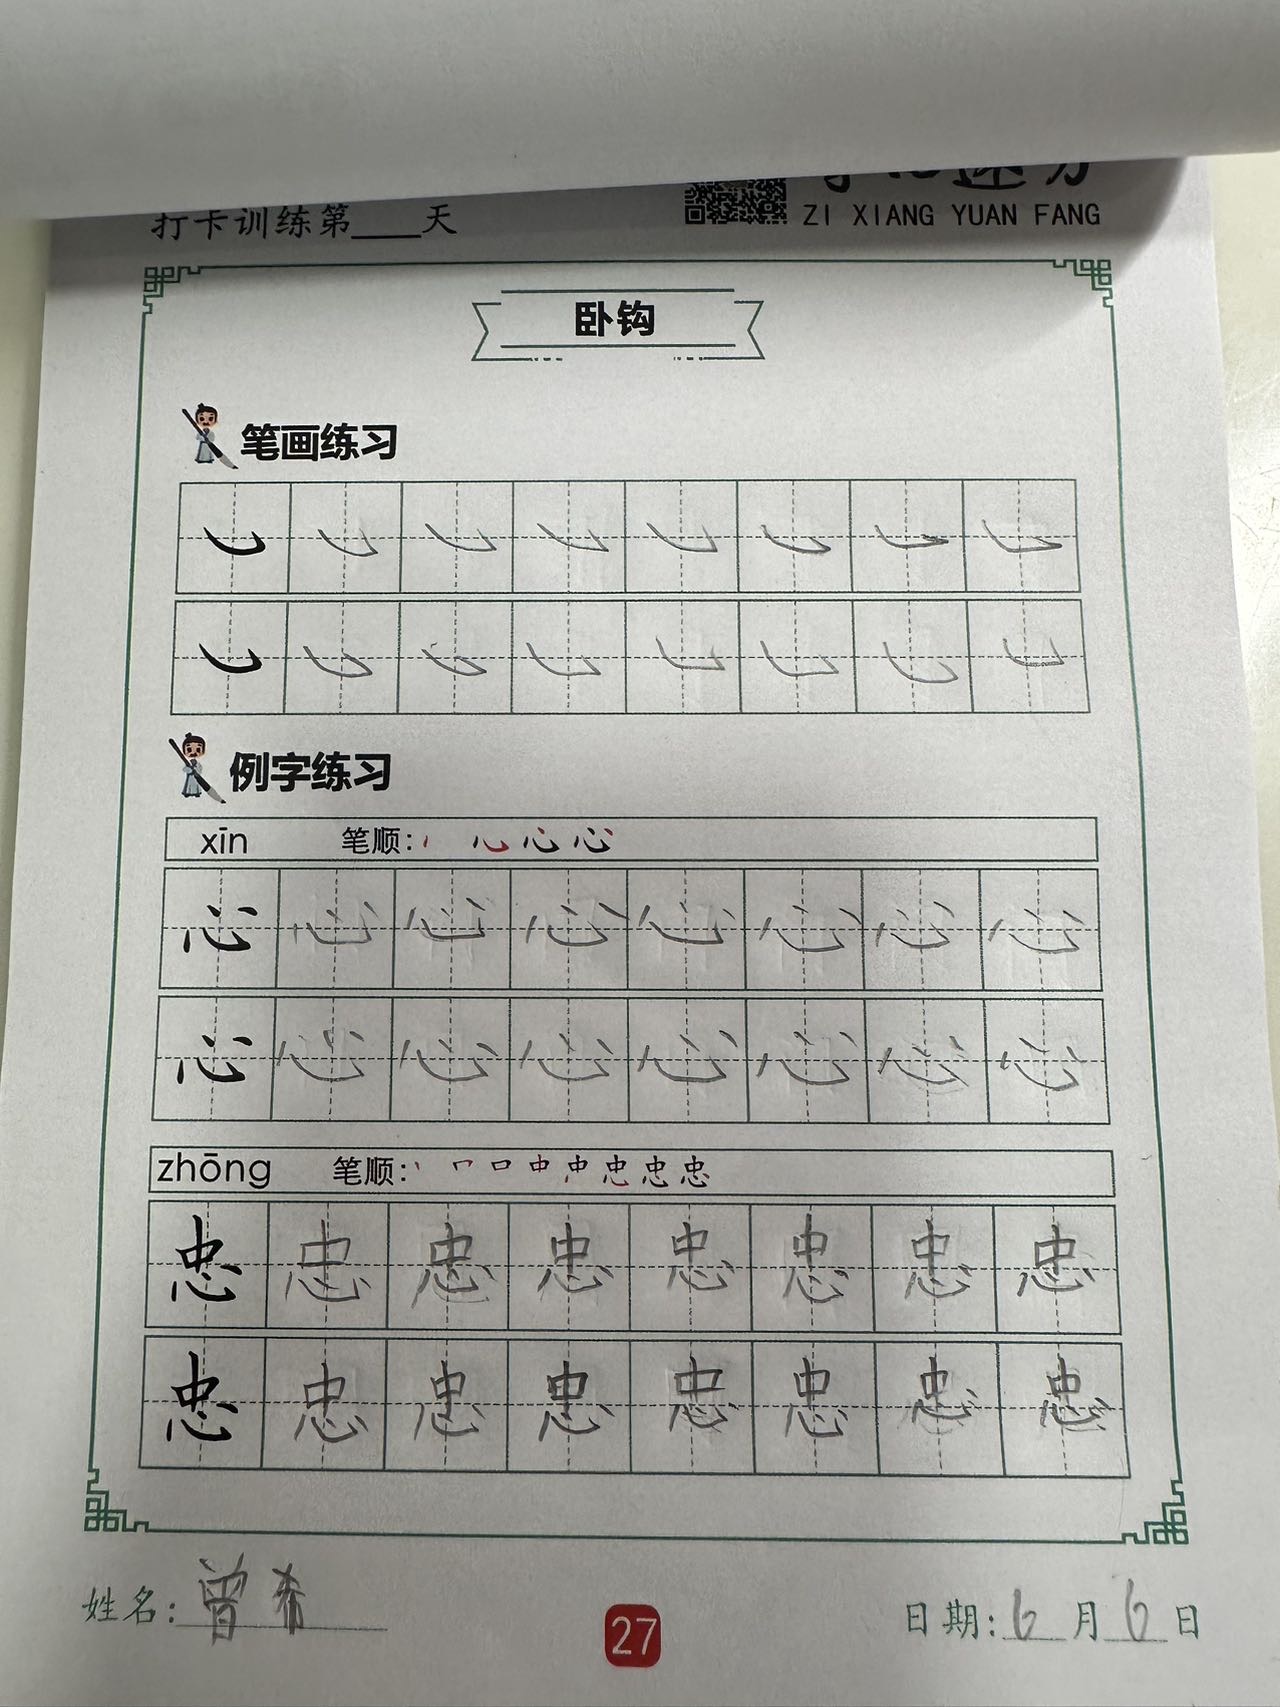 打卡训练第____天
ZI XIANG YUAN FANG
卧钩
笔画练习
㇃ ㇃ ㇃ ㇃ ㇃ ㇃ ㇃ ㇃
㇃ ㇃ ㇃ ㇃ ㇃ ㇃ ㇃ ㇃
例字练习
xīn 笔顺: 心 心
心 心 心 心 心 心 心 心
心 心 心 心 心 心 心 心
zhōng 笔顺: 丨 𠃍 口 中 忠 忠
忠 忠 忠 忠 忠 忠 忠 忠
忠 忠 忠 忠 忠 忠 忠 忠
姓名: 曾希
27
日期: 6月6日